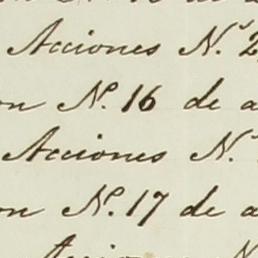 Acciones N.º 2
on N.º 16 de a
Acciones N.º
on N.º 17 de a
Accion N